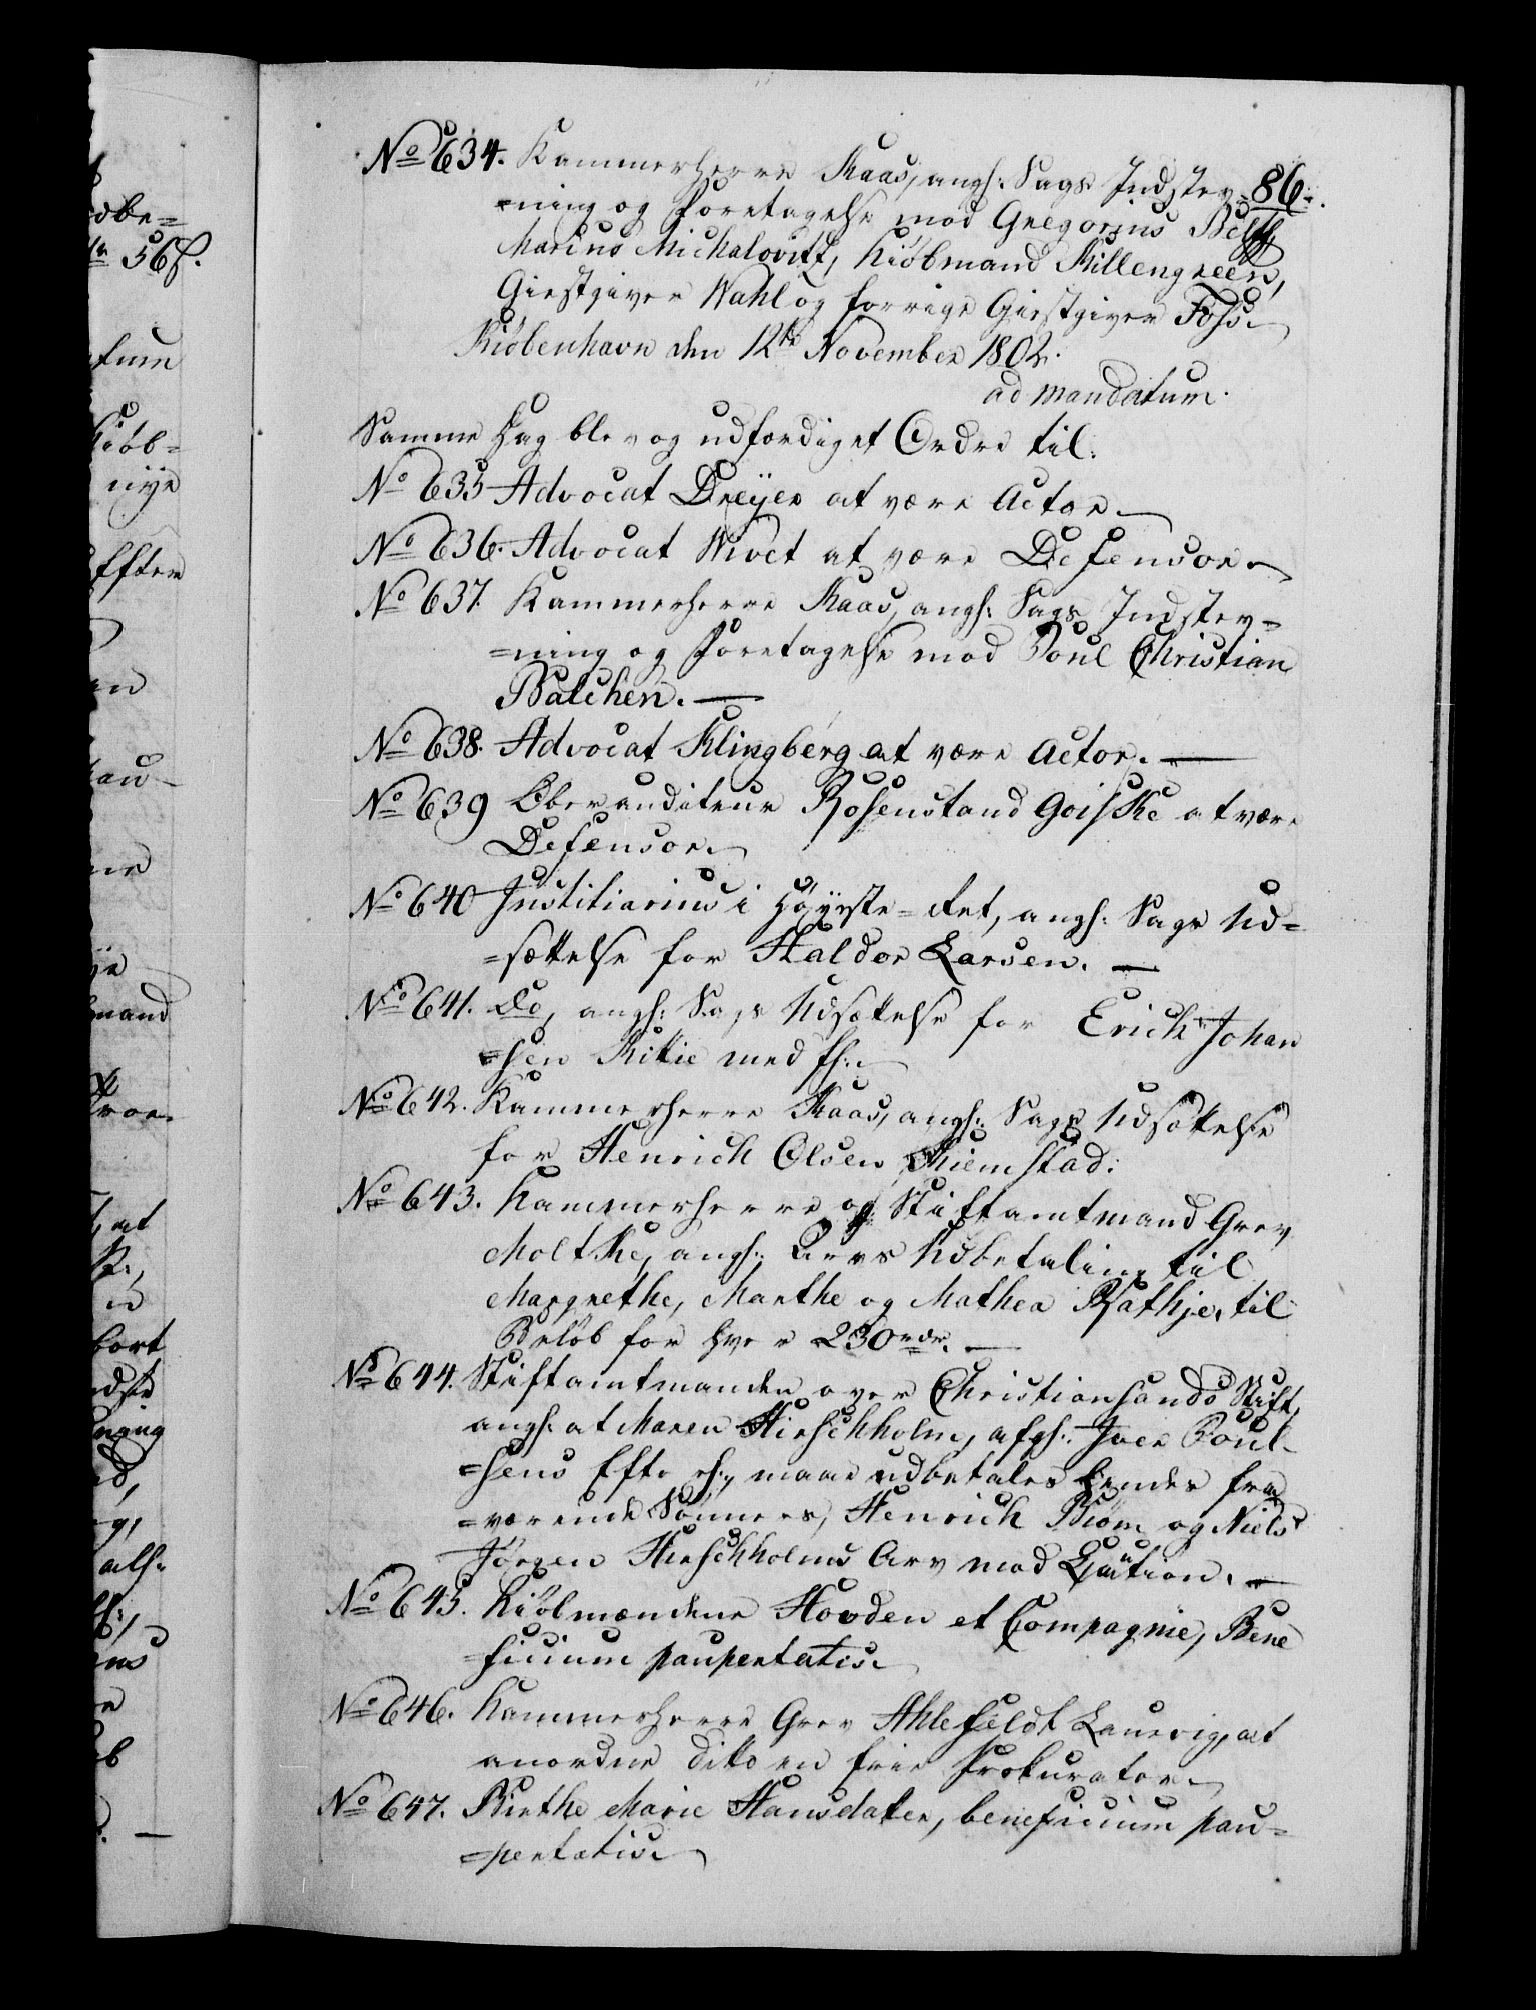 86.
No 634. Kammerherre Kaas, angh: Sags Indstev-
=ning og Foretagelse mod Gregorius
Marius Michalovitz, Kiöbmand Killengreen,
Giestgiver Wahl og forrige Giestgiver Foss.
Kiöbenhavn den 12te November 1802.
ad mandatum.
Samme Dag blev og udfærdiget Ordre til:
No 635 Advocat Dreÿer at være Actor.
No 636. Advocat Wivet at være Defensor.
No 637. Kammerherre Kaas, angh: Sags Indstev=
=ning og Foretagelse mod Poul Christian
Balchen.
No 638. Advocat Klingberg at være Actor.
No 639 Oberauditeur Rosenstand Goiske at være
Defensor.
No 640 Justitiarius i Höÿeste=Ret, angh: Sags Ud=
=sættelse for Haldor Larsen.
No 641. Do, angh: Sags Udsættelse for Erich Johan
=sen Kitie med fl:
No 642. Kammerherre Kaas, angh: Sags Udsættelse
for Henrich Olsen Kiemstad.
No 643. Kammerherre og Stiftamtmand Grev
Moltke, angh: Arvs Udbetaling til
Margrethe, Marthe og Mathea Rathje, til
Belöb for hver 230 rdr.
No 644. Stiftamtmanden over Christiansands Stift,
angh: at Maren Hirschholm, afgh: Iver Poul-
=sens Efterh:, maae udbetales hendes fra
=værende Sönners, Henrich Biörn og Niels
Jörgen Hirschholms Arv mod Caution.
No 645. Kiöbmændene Hovden et Compagnie, Bene
=ficium paupertatis.
No 646. Kammerherre Grev Ahlefeldt Laurvig, at
anordne dito en frie Prokurator.
No 647. Birthe Marie Hansdatter, beneficium pau=
=pertatis.